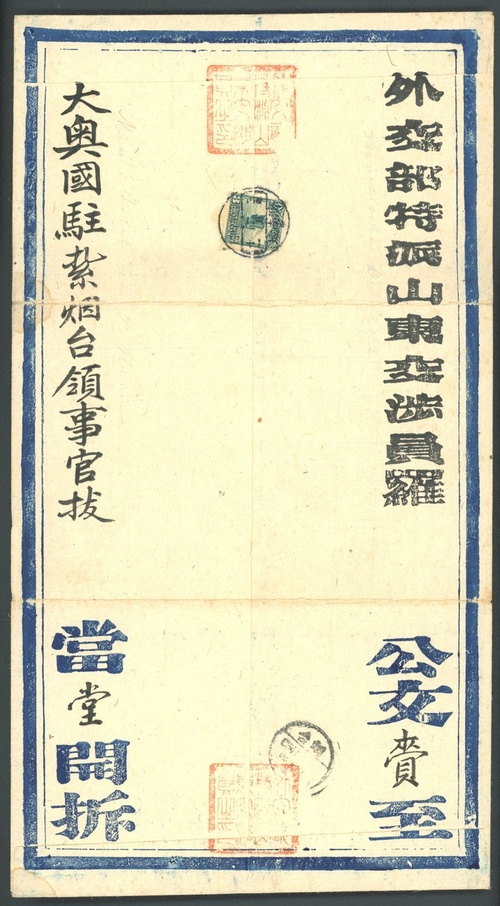 外交部特派山東交涉員羅
公文賫至
大奥國駐紮烟台領事官拔
當堂開拆